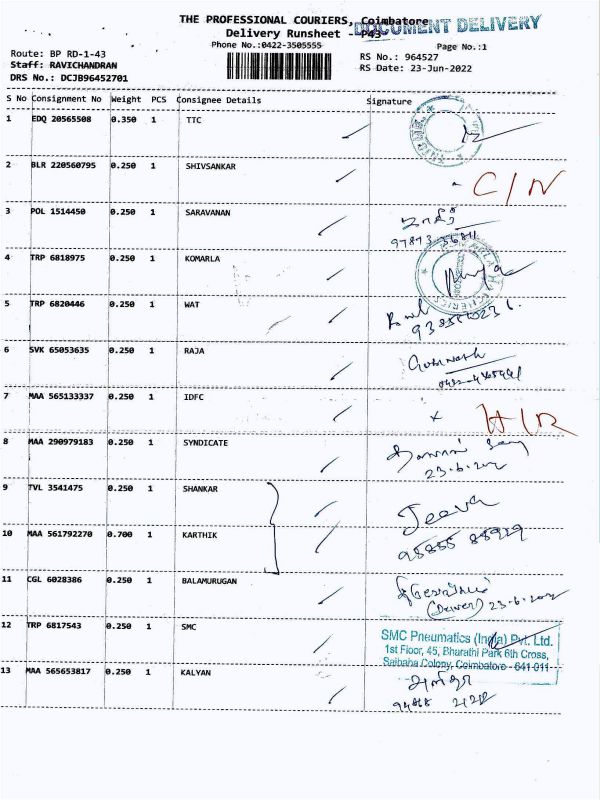 THE PROFESSIONAL COURIERS, Coimbatore
DOCUMENT DELIVERY
Delivery Runsheet - P43
Phone No.:0422-3505555
Page No.:1
Route: BP RD-1-43
RS No.: 964527
Staff: RAVICHANDRAN
RS Date: 23-Jun-2022
DRS No.: DCJB96452701
S No Consignment No Weight PCS Consignee Details Signature
1 EDQ 20565508 0.350 1 TTC
2 BLR 220560795 0.250 1 SHIVSANKAR C/N
3 POL 1514450 0.250 1 SARAVANAN
4 TRP 6818975 0.250 1 KOMARLA
5 TRP 6820446 0.250 1 WAT
6 SVK 65053635 0.250 1 RAJA
7 MAA 565133337 0.250 1 IDFC
8 MAA 290979183 0.250 1 SYNDICATE
9 TVL 3541475 0.250 1 SHANKAR Jeeva
10 MAA 561792270 0.700 1 KARTHIK
11 CGL 6028386 0.250 1 BALAMURUGAN
12 TRP 6817543 0.250 1 SMC
SMC Pneumatics (India) Pvt. Ltd.
1st Floor, 45, Bharathi Park 6th Cross,
Saibaba Colony, Coimbatore - 641 011
13 MAA 565653817 0.250 1 KALYAN